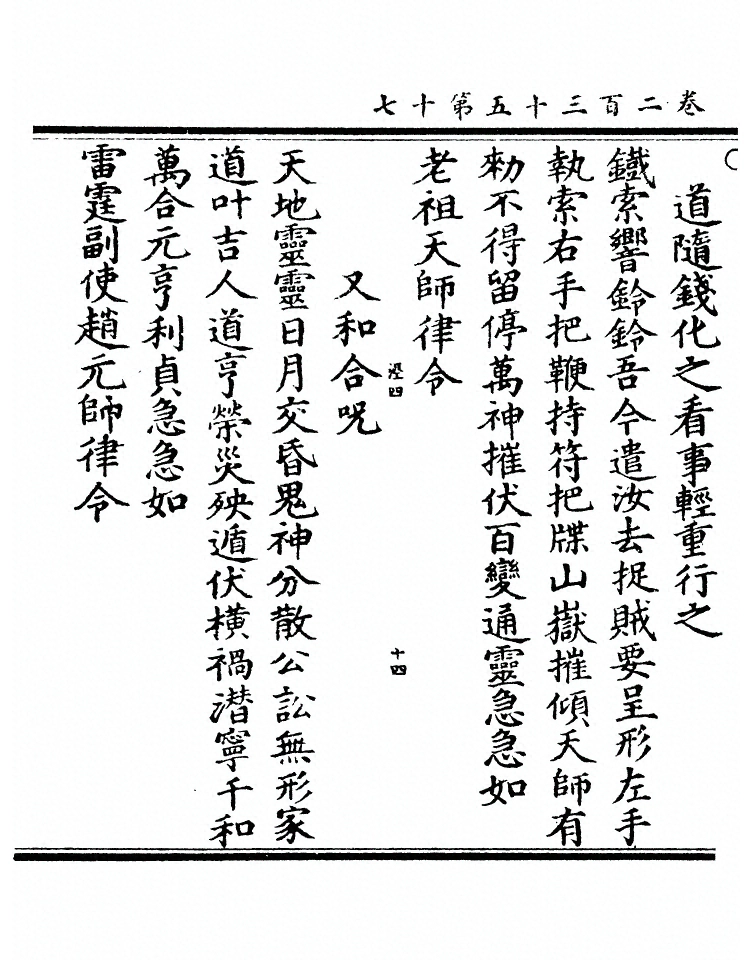 卷二百三十五第十七
道隨錢化之看事輕重行之
鐵索響鈴鈴吾今遣汝去捉賊要呈形左手
執索右手把鞭持符把牒山嶽摧傾天師有
勑不得留停萬神摧伏百變通靈急急如
老祖天師律令
涇四
十四
又和合呪
天地靈靈日月交昏鬼神分散公訟無形家
道叶吉人道亨榮災殃遁伏橫禍潛寧千和
萬合元亨利貞急急如
雷霆副使趙元師律令